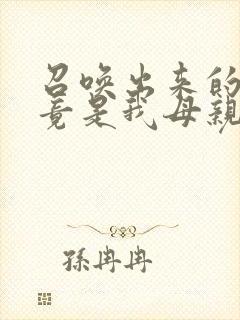 召喚出来的
竟是我母親
孫冉冉